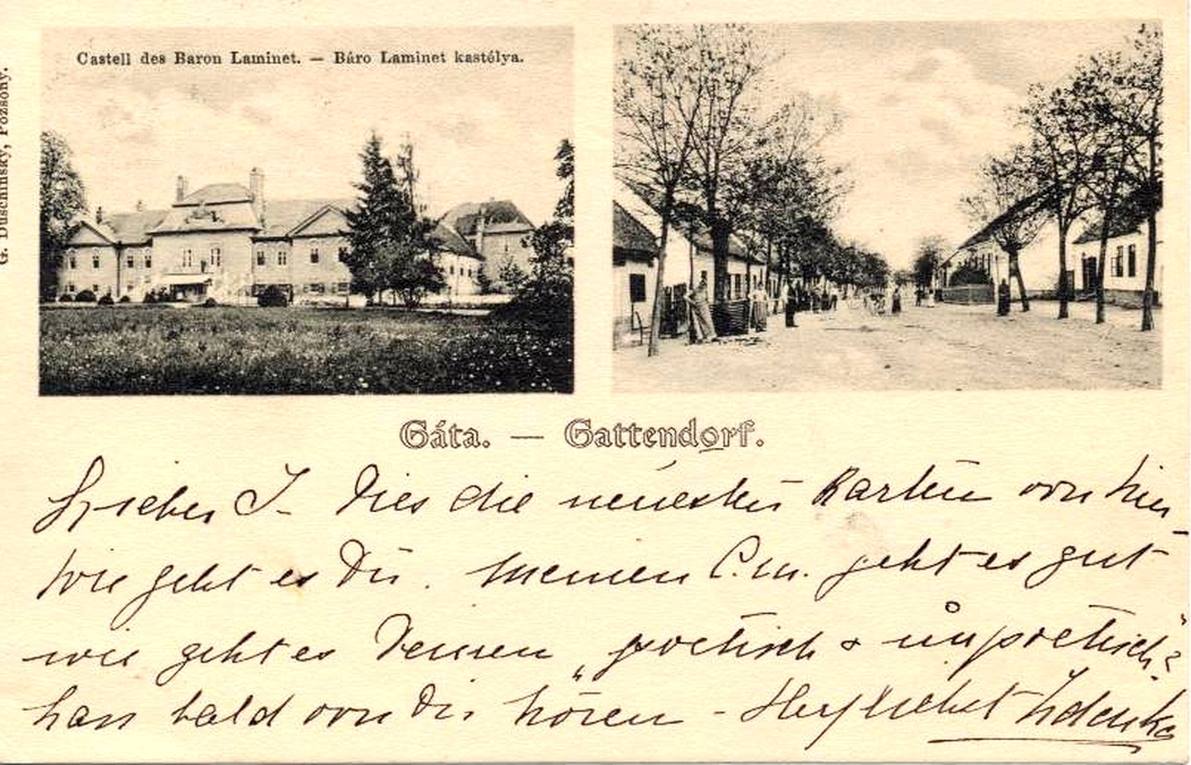 Castell des Baron Laminet. — Báro Laminet kastélya.
G. Duschinsky, Pozsony.
Gáta. — Gattendorf.
Lieber J- Dies die neuesten Karten von hier
Wie geht es Dir. Meinen C.m. geht es gut
wie geht es Deinen „poetisch & unpoetisch"?
lass bald von Dir hören - Herzlichst Zdenka